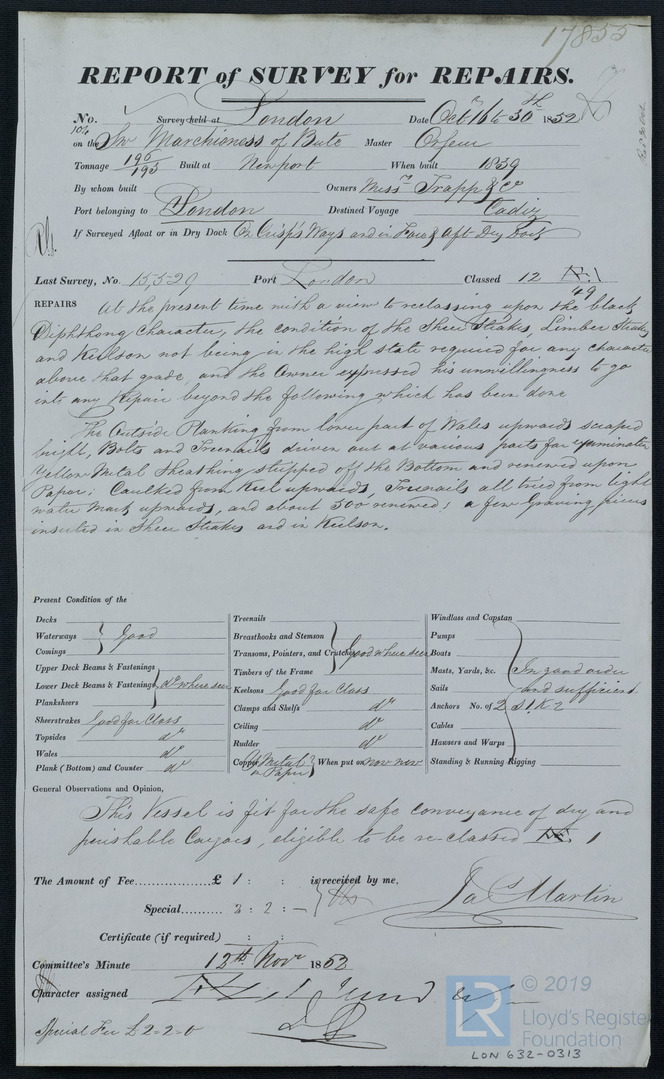 17855
REPORT of SURVEY for REPAIRS.
No. Survey held at London Date Octr 16 to 30th 1852
on the Sw Marchioness of Bute Master
Tonnage 196/193 Built at Newport When built 1839
By whom built Owners Messrs Trapp & Co
Port belonging to London Destined Voyage Cadiz
If Surveyed Afloat or in Dry Dock On Crisp's Ways and in Fore & Aft Dry Dock
Last Survey, No. 15,529 Port London Classed 12 Æ 1
49
REPAIRS At the present time with a view to reclassing upon the black
Diphthong Character, the condition of the Sheer Strakes, Limber Strakes
and Keelson not being in the high state required for any character
above that grade, and the Owner expressed his unwillingness to go
into any Repair beyond the following which has been done
The Outside Planking from lower part of Wales upwards scraped
bright, Bolts and Treenails driven out at various parts for examination
Yellow Metal Sheathing stripped off the Bottom and renewed upon
Paper; Caulked from Keel upwards, Treenails all tried from light
water mark upwards, and about 500 renewed; a few Graving pieces
inserted in Sheer Strakes and in Keelson.
Present Condition of the
Decks
Waterways Good
Comings
Upper Deck Beams & Fastenings
Lower Deck Beams & Fastenings do where seen
Planksheers
Sheerstrakes Good for Class
Topsides do
Wales do
Plank (Bottom) and Counter do
Treenails
Breasthooks and Stemson
Transoms, Pointers, and Crutches Good where seen
Timbers of the Frame
Keelsons Good for Class
Clamps and Shelfs do
Ceiling do
Rudder do
Copper Y. Metal on Paper When put on now new
Windlass and Capstan
Pumps
Boats
Masts, Yards, &c. In good order
Sails and sufficient
Anchors No. of 2 St. K 2
Cables
Hawsers and Warps
Standing & Running Rigging
General Observations and Opinion,
This Vessel is fit for the safe conveyance of dry and
perishable Cargoes, eligible to be re-classed Æ 1
The Amount of Fee £ 1 : : is received by me,
Special 2 : 2 : — Jas Martin
Certificate (if required) : :
Committee's Minute 12th Novr 1852
Character assigned Æ 1
Special Fee £2-2-0
LR © 2019
Lloyd's Register
Foundation
LON 632-0313